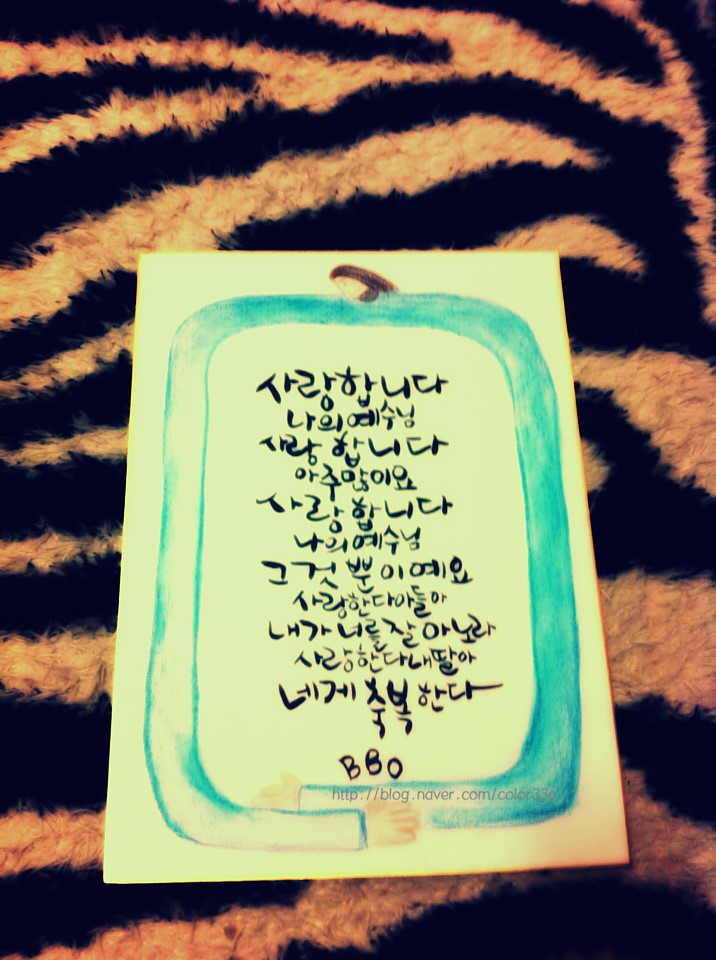 사랑합니다
나의 예수님
사랑합니다
아주 많이요
사랑합니다
나의 예수님
그것뿐이예요
사랑한다 아들아
내가 너를 잘 아노라
사랑한다 내 딸아
네게 축복한다
BBO
http://blog.naver.com/color33